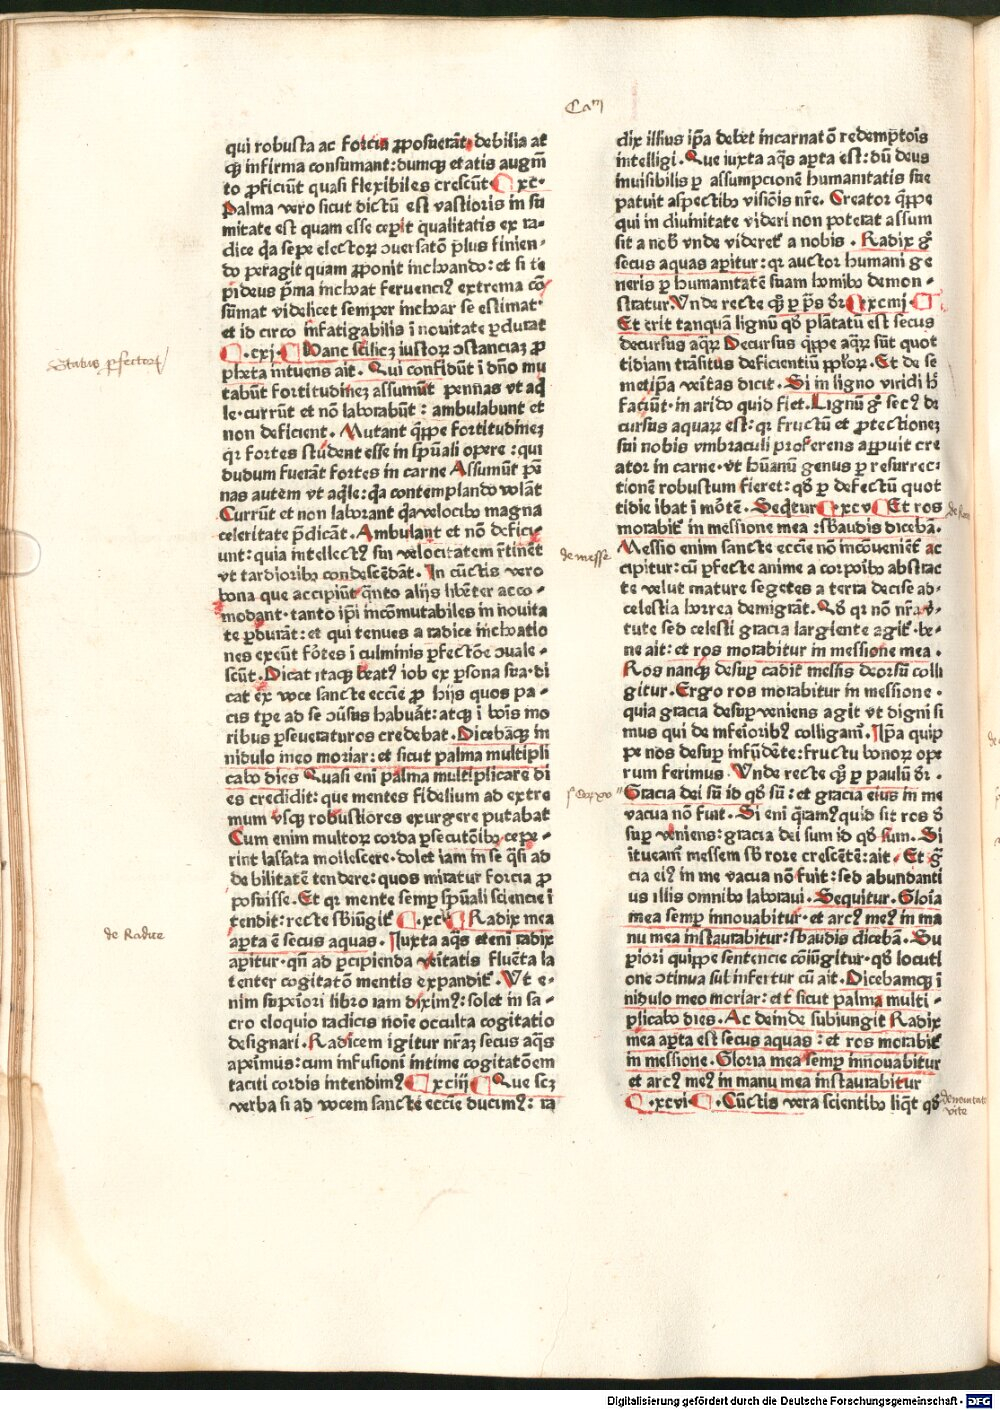 qui robusta ac forcia ꝓposuerāt debilia at
qꝫ infirma consumant: dumqꝫ etatis augm̄
to ꝓficiūt quasi flexibiles crescūt ¶ xc·
Palma vero sicut dictū est vastioris in su
mitate est quam esse ceꝑit qualitatis ex ra-
dice q̄a sepe electoꝝ ɔuersatō plus finien-
do ꝑagit quam ꝓponit inchoando: et si te
pideus p̄ma inchoat feruenciꝰ extrema cō
sūmat videlicet semper inchoar se estimat
et id circo infatigabilis ī nouitate ꝑdurat
¶ ·cxj· ¶ Hanc scilicꝫ iustoꝝ ɔstanciaꝫ ꝓ
pheta intuens ait. Qui confidūt ī dn̄o mu
tabūt fortitudinez assumūt pennas vt aq̄
le· currūt et nō laborabūt: ambulabunt et
non deficient. Mutant qp̄pe fortitudinez
qꝛ fortes student esse in spūali opere: qui
dudum fuerāt fortes in carne Assumūt pē
nas autem vt aq̄le: q̄a contemplando volāt
Currūt et non laborant q̄a velocibꝰ magna
celeritate p̄dicāt. Ambulant et nō defici-
unt: quia intellectꝰ sui velocitatem r̄tinēt
vt tardioribꝰ condescēdāt. In cūctis vero
bona que accipiūt q̄nto alijs libēter acco-
modant· tanto ip̄i incōmutabiles in nouita
te ꝑdurāt: et qui tenues a radice inchoatio
nes exeūt fōtes ī culminis ꝑfectōe ɔuale-
scūt. Dicat itaqꝫ beatꝰ iob ex ꝑsona sua· di
cat ex voce sancte eccīe ꝓ hijs quos pa-
cis tꝑe ad se ɔūsus habuāt: atqꝫ ī bōis mo
ribus ꝑseueraturos credebat. Dicebāqꝫ in
nidulo meo moriar: et sicut palma multipli
cabo dies Quasi enī palma multiplicare di
es credidit: que mentes fidelium ad extre
mum vsqꝫ robustiores exurgere putabat
Cum enim multoꝝ corda ꝑsecutōibꝰ cepe-
rint lassata mollescere· dolet iam in se q̄si ad
debilitatē tendere: quos miratur forcia ꝓ
posuisse. Et qꝛ mente semꝑ spūali sciencie ī
tendit: recte sb̄iūgitᷣ ¶ ·xcij ¶ Radix mea
aꝑta ē secus aquas. Iuxta aq̄s etenī radix
aꝑitur· qn̄ ad ꝑcipienda veitatis fluēta la
tenter cogitatō mentis expanditᷣ. Vt e-
nim suꝑiori libro iam diximꝰ: solet in sa-
cro eloquio radicis noīe occulta cogitatio
designari. Radicem igitur nr̄aꝫ secus aq̄s
aꝑeimus: cum infusioni intime cogitatōem
taciti cordis intendimꝰ ¶ xciij ¶ Que scꝫ
verba si ad vocem sancte eccīe ducimꝰ: ra
Status ꝑfectorꝝ
de Radice
Caᵐ
dix illius ip̄a debet incarnatō redemptoīs
intelligi. Que iuxta aq̄s aꝑta est: dū deus
inuisibilis ꝑ assumpcionē humanitatis sue
patuit aspectibꝰ visiōis nr̄e. Creator qp̄pe
qui in diuinitate videri non poterat assum
sit a nob̄ vnde videretᷣ a nobis. Radix gͦ
secus aquas aꝑitur: qꝛ auctor humani ge
neris ꝑ humanitatē suam homībꝰ demon-
stratur. Vnde recte qꝫ ꝑ pp̄s dr̄ ¶ xcmj· ¶
Et erit tanquā lignū qd̄ plātatū est secus
decursus aq̄ꝝ Decursus qp̄pe aq̄ꝝ sūt quot
tidiam trāsitus deficientiū ppl̄oꝝ. Et de se
metip̄a veītas dicit. Si in ligno viridi h̄
faciūt· in arido quid fiet. Lignū gͦ secꝰ de
cursus aquaꝝ est: qꝛ fructū et ꝓtectionez
sui nobis vmbraculi proferens aꝑuit cre
ator in carne· vt hūanū genus ꝑ resurreci
tionē robustum fieret: qd̄ ꝑ defectū quot
tidie ibat ī mōtē. Seqͥtur ¶ xcv ¶ Et ros
morabitᷣ in messione mea: sb̄audis dicebā.
Messio enim sancte eccīe nō incōueniēt̄ ac
cipitur: cū ꝑfecte anime a corꝑoibꝰ abstrac
te velut mature segetes a terra decise ad
celestia horrea demigrāt. Qd̄ qꝛ nō nr̄a v-
tute sed celesti gracia largiente agitᷣ· be-
ne ait: et ros morabitur in messione mea.
Ros nanqꝫ desuꝑ cadit messis deorsū colli
gitur. Ergo ros morabitur in messione.
quia gracia desuꝑ veniens agit vt digni si
mus qui de inferioribꝰ colligam̄. Ip̄a quip
pe nos desuꝑ infūdēte: fructu bonoꝝ ope
rum ferimus. Vnde recte qꝫ ꝑ paulū dr̄.
Gracia dei sū id qd̄ sū: et gracia eius in me
vacua nō fuit. Si enī qͥram̄ quid sit ros d̄
suꝑ veniens: gracia dei sum id qd̄ sum. Si
ītueam̄ messem sb̄ rore crescētē: ait. Et gͣ
cia eiꝰ in me vacua nō fuit: sed abundanti
us illis omnibꝰ laboraui. Sequitur. Gloīa
mea semꝑ innouabitur· et arcꝰ meꝰ in ma
nu mea instaurabitur: sb̄audis dicebā. Su
ꝑiori quippe sentencie cōiūgitur· qd̄ locuti
one ɔtinua subinfertur cū ait. Dicebamqꝫ ī
nidulo meo moriar: et sicut palma multi-
plicabo dies. Ac deinde subiungit Radix
mea aꝑta est secus aquas: et ros morabitᷣ
in messione. Gloria mea semꝑ innouabitur
et arcꝰ meꝰ in manu mea instaurabitur
¶ ·xcvi· ¶ Cūctis vera scientibꝰ liqͣt qd̄
de messe
de nouitate
vite
Digitalisierung gefördert durch die Deutsche Forschungsgemeinschaft - DFG